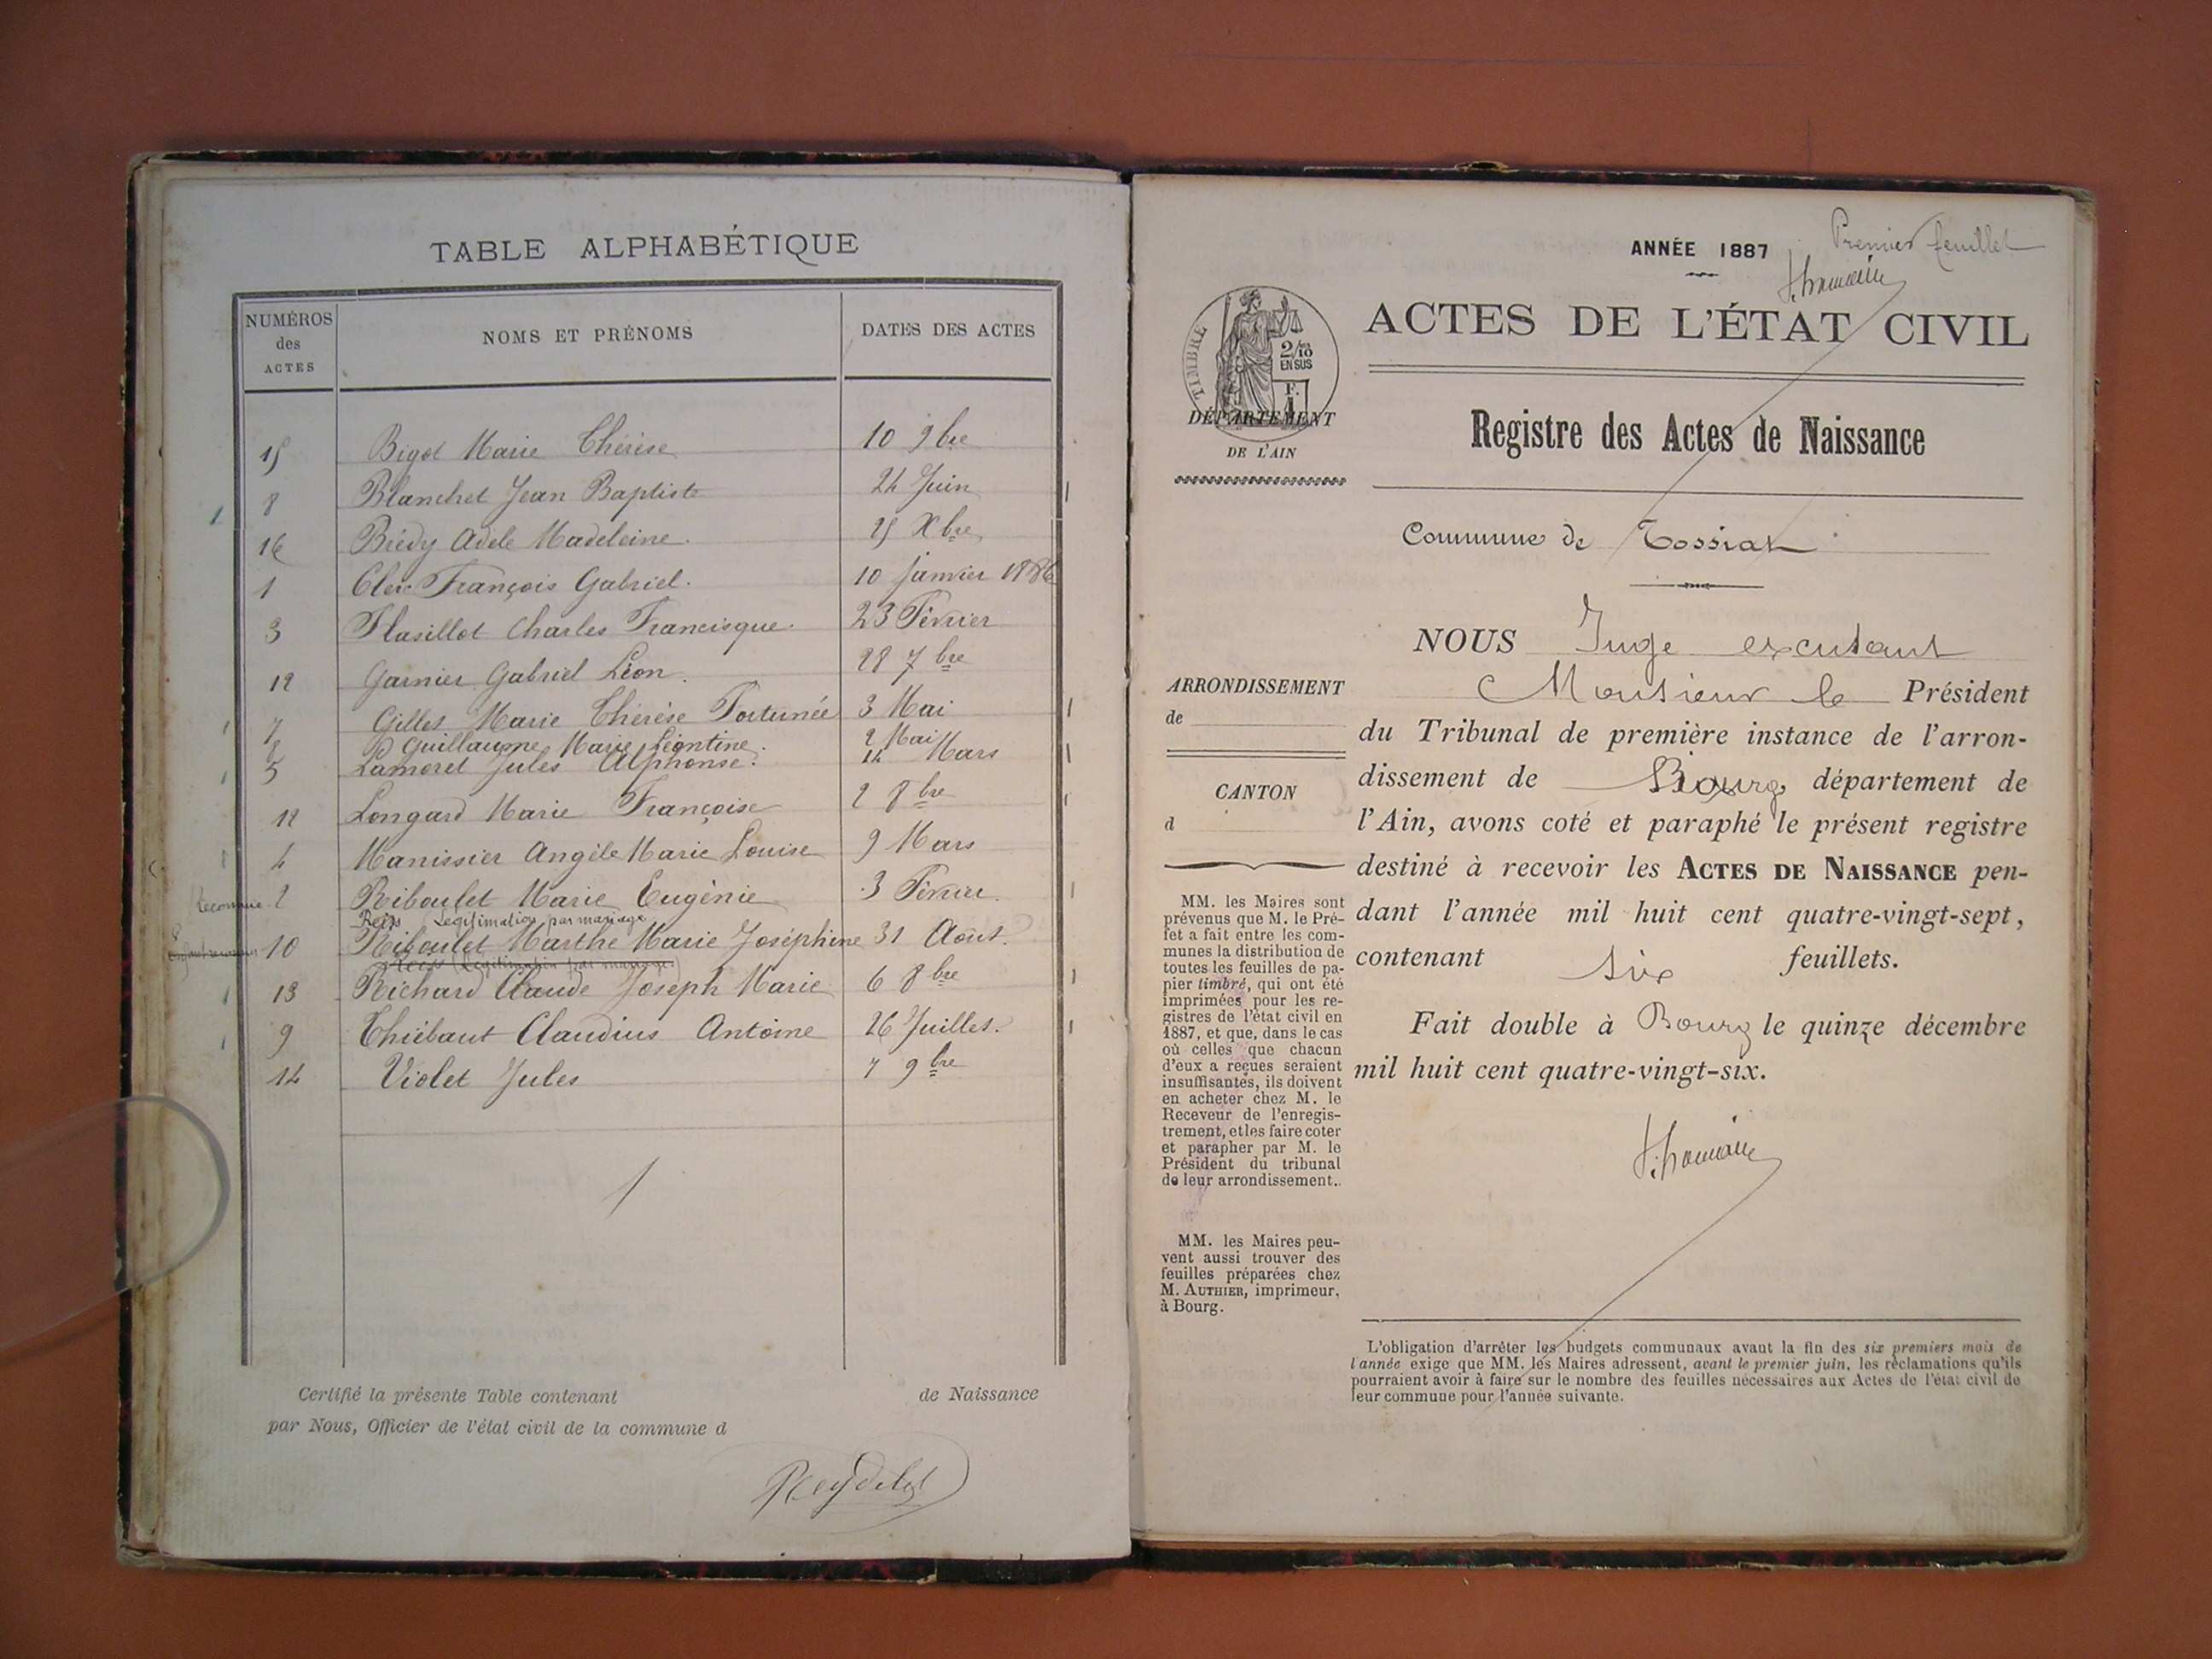 TABLE ALPHABÉTIQUE
NUMÉROS des ACTES NOMS ET PRÉNOMS DATES DES ACTES
15 Bigot Marie Thérèse 10 9bre
8 Blanchet Jean Baptiste 24 Juin
16 Brédy Adèle Madeleine. 25 Xbre
1 Clerc François Gabriel. 10 Janvier 1886
3 Flasillot Charles Francisque. 23 Février
12 Garnier Gabriel Léon. 28 7bre
7 Gilles Marie Thérèse Fortunée 3 Mai
Guillaume Marie Léontine. 2 Mai
5 Lamoret Jules Alphonse. 14 Mars
12 Longard Marie Françoise 2 8bre
4 Manissier Angèle Marie Louise 9 Mars
Reconnue 2 Riboulet Marie Eugénie 3 Février.
Reips Légitimation par mariage
10 Riboulet Marthe Marie Joséphine 31 Août.
(Légitimation par mariage)
13 Richard Claude Joseph Marie 6 8bre
9 Thiébaut Claudius Antoine 26 Juillet.
14 Violet Jules 7 9bre
Certifié la présente Table contenant de Naissance
par Nous, Officier de l'état civil de la commune d
Reydelet
Premier feuillet
ANNÉE 1887
TIMBRE
2/10
EN SUS
F.
1
ACTES DE L'ÉTAT CIVIL
DÉPARTEMENT
DE L'AIN
Registre des Actes de Naissance
Commune de Tossiat
ARRONDISSEMENT
de
CANTON
d
MM. les Maires sont
prévenus que M. le Pré-
fet a fait entre les com-
munes la distribution de
toutes les feuilles de pa-
pier timbré, qui ont été
imprimées pour les re-
gistres de l'état civil en
1887, et que, dans le cas
où celles que chacun
d'eux a reçues seraient
insuffisantes, ils doivent
en acheter chez M. le
Receveur de l'enregis-
trement, et les faire coter
et parapher par M. le
Président du tribunal
de leur arrondissement.
MM. les Maires peu-
vent aussi trouver des
feuilles préparées chez
M. AUTHIER, imprimeur,
à Bourg.
NOUS Juge excusant
Monsieur le Président
du Tribunal de première instance de l'arron-
dissement de Bourg, département de
l'Ain, avons coté et paraphé le présent registre
destiné à recevoir les ACTES DE NAISSANCE pen-
dant l'année mil huit cent quatre-vingt-sept,
contenant six feuillets.
Fait double à Bourg le quinze décembre
mil huit cent quatre-vingt-six.
L'obligation d'arrêter les budgets communaux avant la fin des six premiers mois de
l'année exige que MM. les Maires adressent, avant le premier juin, les réclamations qu'ils
pourraient avoir à faire sur le nombre des feuilles nécessaires aux Actes de l'état civil de
leur commune pour l'année suivante.